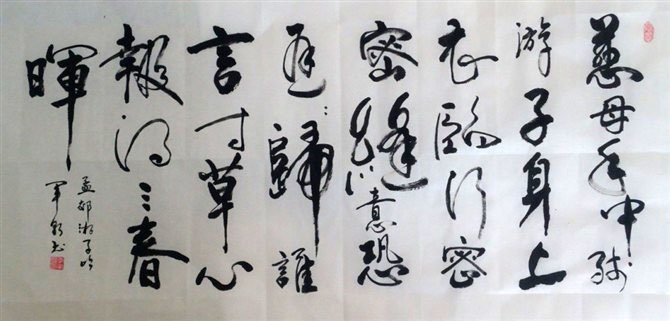 慈母手中线
游子身上
衣臨行密
密縫意恐
遲:歸誰
言寸草心
報得三春
暉
孟郊游子吟
书